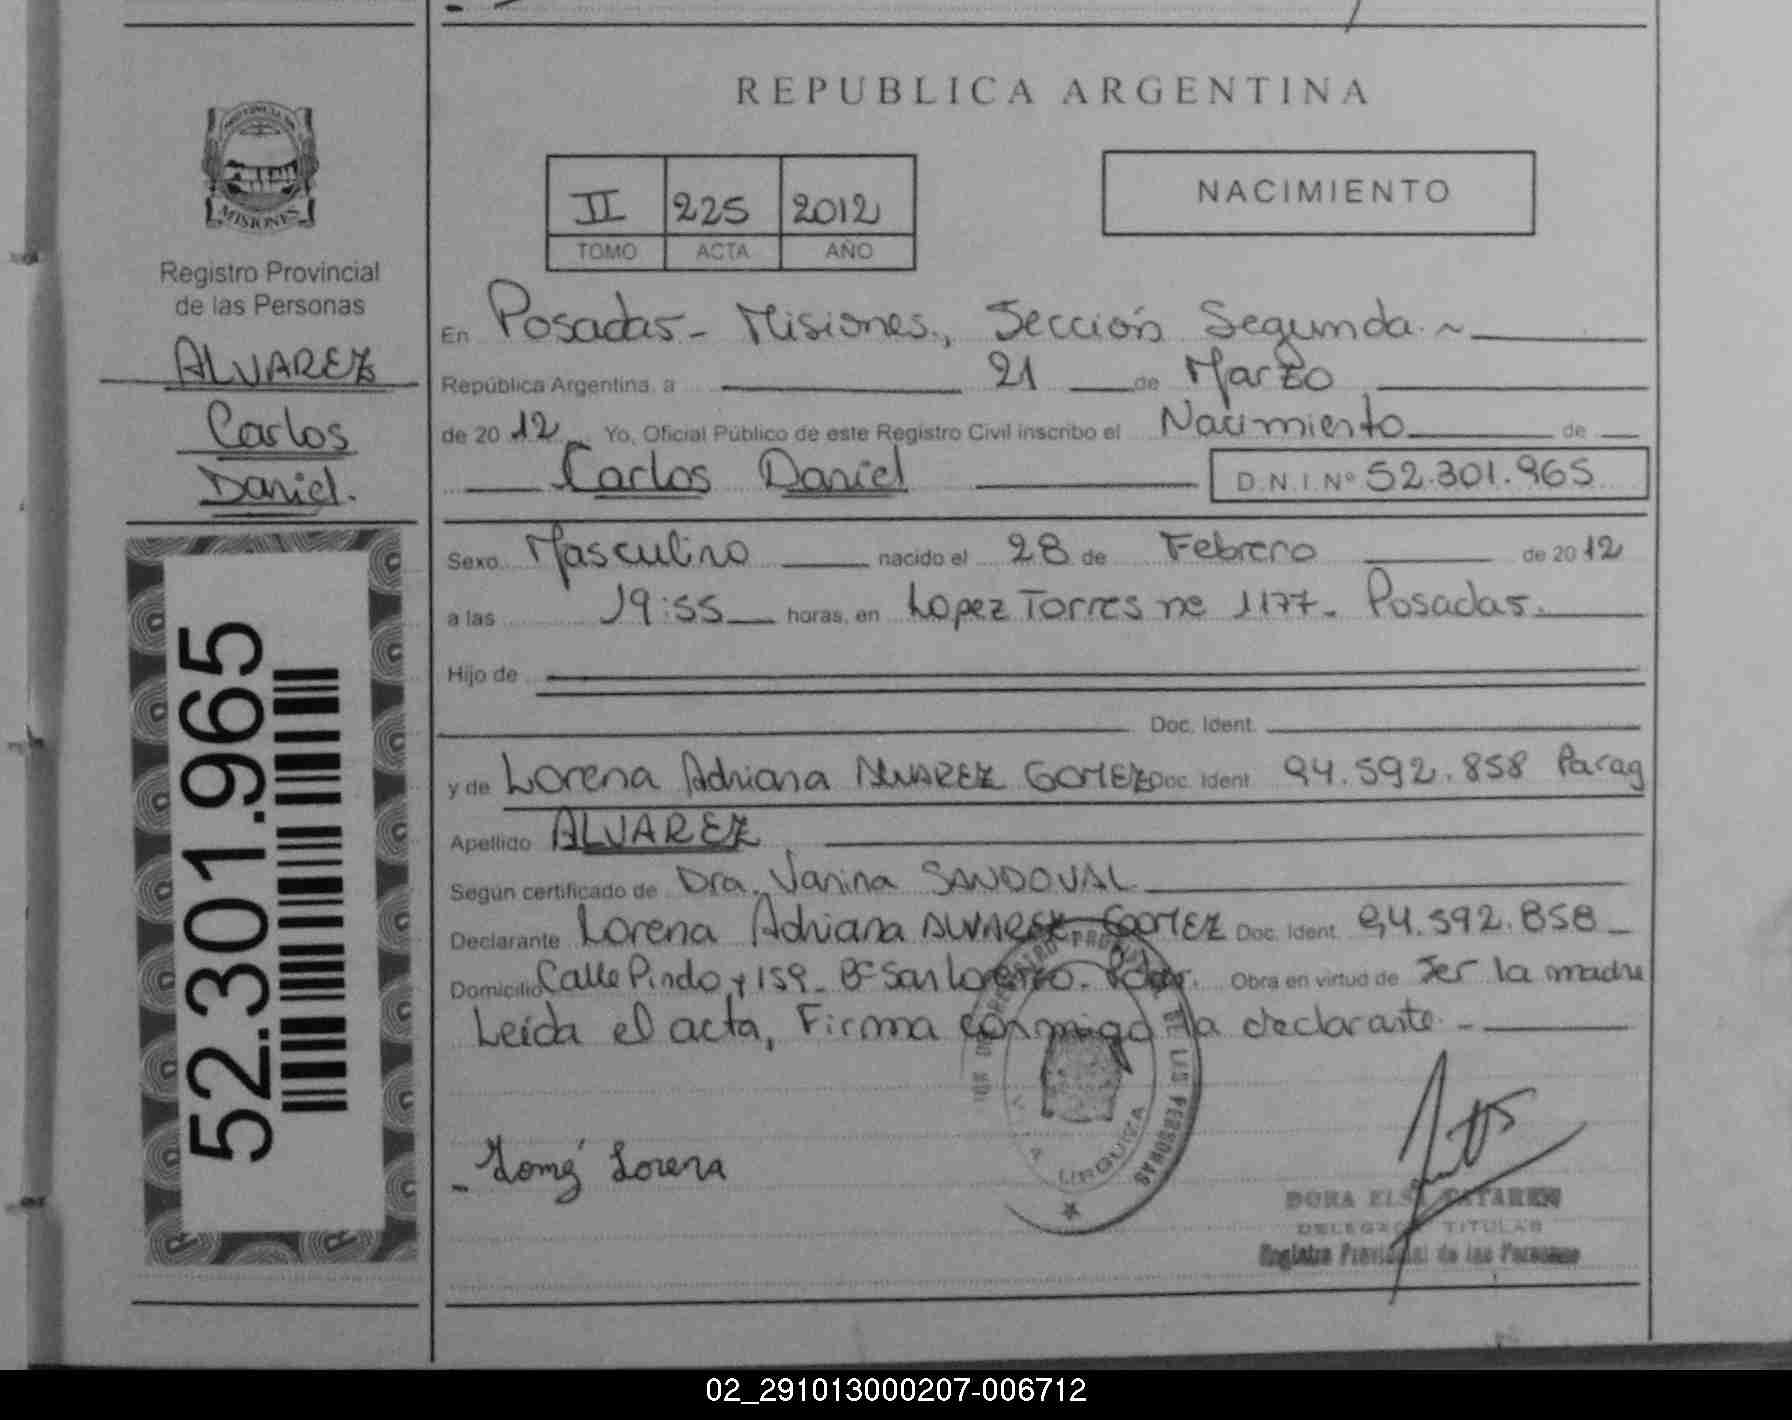 REPUBLICA ARGENTINA
PROVINCIA DE
MISIONES
Registro Provincial
de las Personas
ALVAREZ
Carlos
Daniel.
52.301.965
II 225 2012
TOMO ACTA AÑO
NACIMIENTO
En Posadas - Misiones., Sección Segunda.~
República Argentina, a 21 de Marzo
de 20 12 Yo, Oficial Público de este Registro Civil inscribo el Nacimiento de
Carlos Daniel D.N.I. Nº 52.301.965
Sexo Masculino nacido el 28 de Febrero de 20 12
a las 19:55 horas, en Lopez Torres nº 1177- Posadas.
Hijo de
Doc. Ident.
y de Lorena Adriana ALVAREZ GOMEZ Doc. Ident 94.592.858 Parag
Apellido ALVAREZ
Según certificado de Dra. Vanina SANDOVAL
Declarante Lorena Adriana ALVAREZ GOMEZ Doc. Ident. 94.592.858_
Domicilio Calle Pindo y 159- Bº San Lorenzo. Pdas. Obra en virtud de Ser la madre
Leída el acta, Firma conmigo la declarante.-
DE LAS PERSONAS
URQUIZA
- Lorena
DORA
DELEGADO TITULAR
Registro Provincial de las Personas
02_291013000207-006712